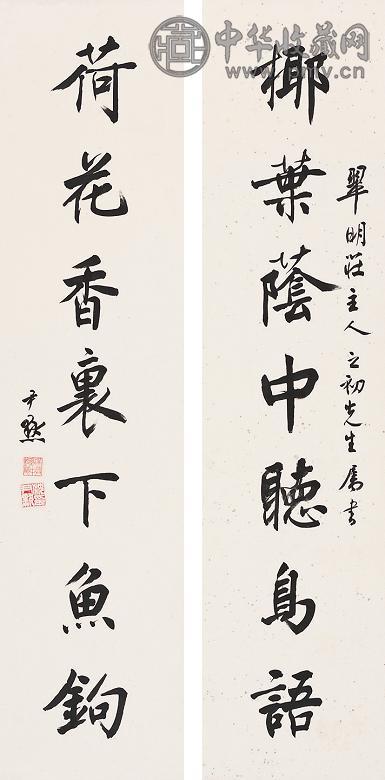 中华收藏网
www.pmlv.cn
翠明莊主人立初先生屬書
椰葉蔭中聽鳥語
荷花香裏下魚鉤
尹默